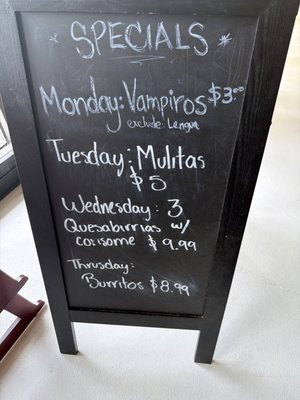 * SPECIALS *
Monday: Vampiros $3.00
exclude: Lengua
Tuesday: Mulitas
$5
Wednesday: 3
Quesabirrias w/
consome $9.99
Thrusday:
Burritos $8.99